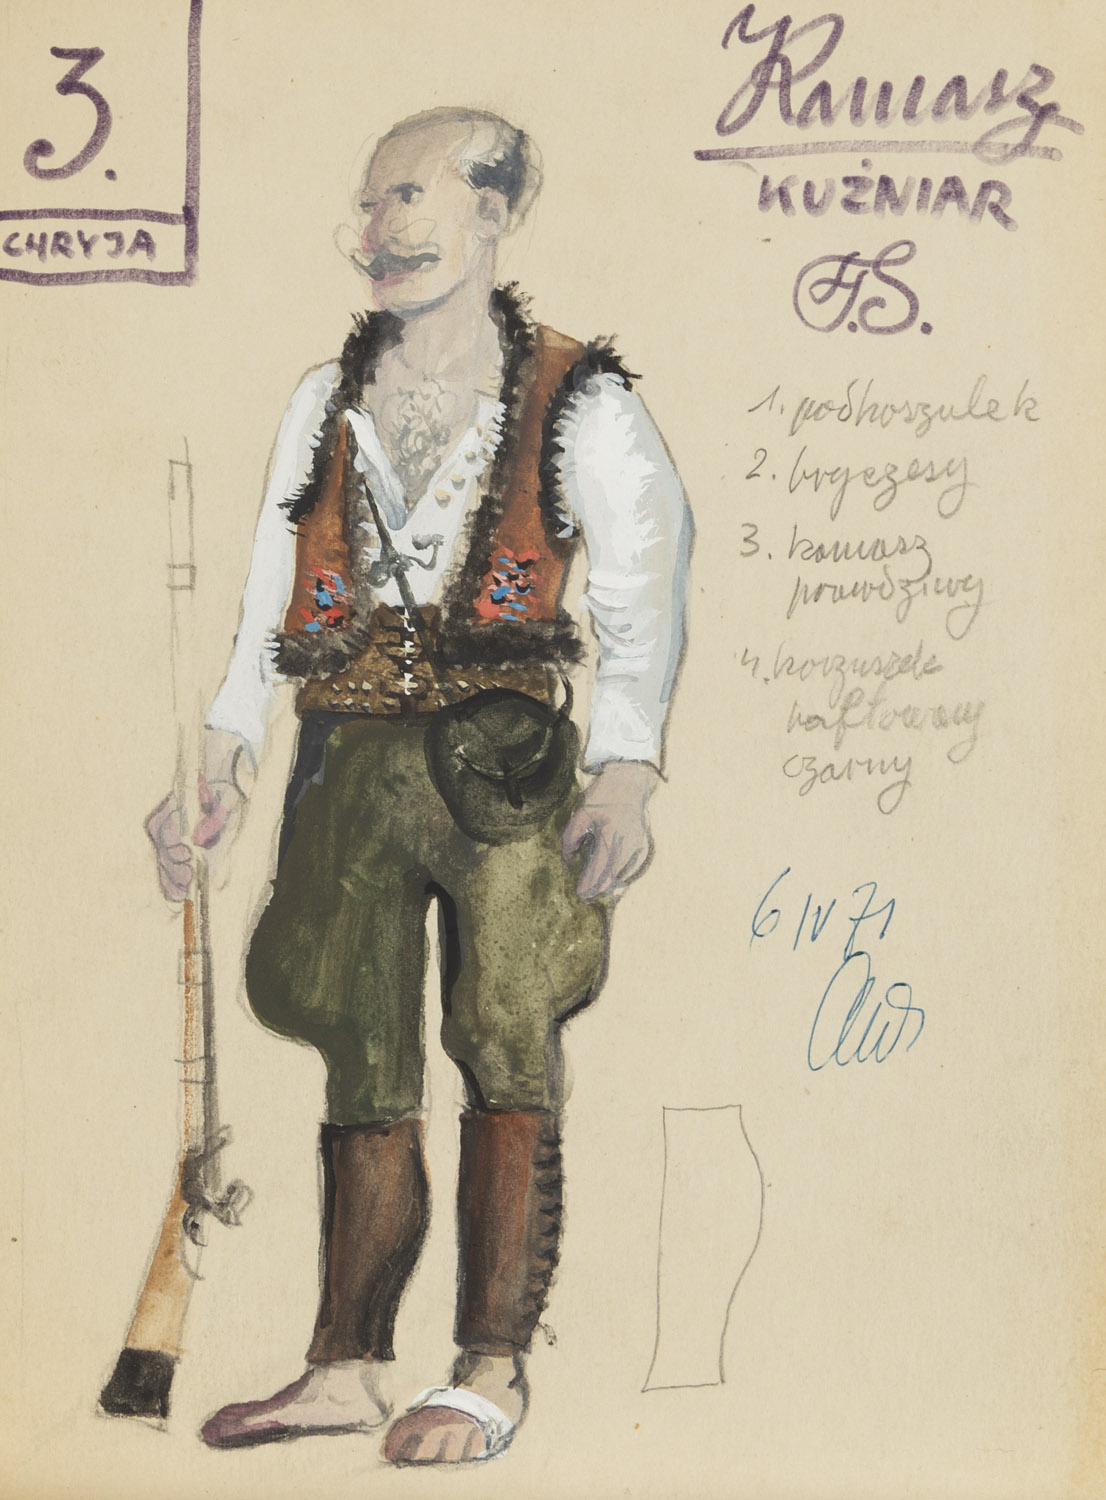 3.
CHRYJA
Kamasz
KUŹNIAR
F.S.
1. podkoszulek
2. bryczesy
3. kamasz
prawdziwy
4. kożuszek
haftowany
czarny
6 IV 71